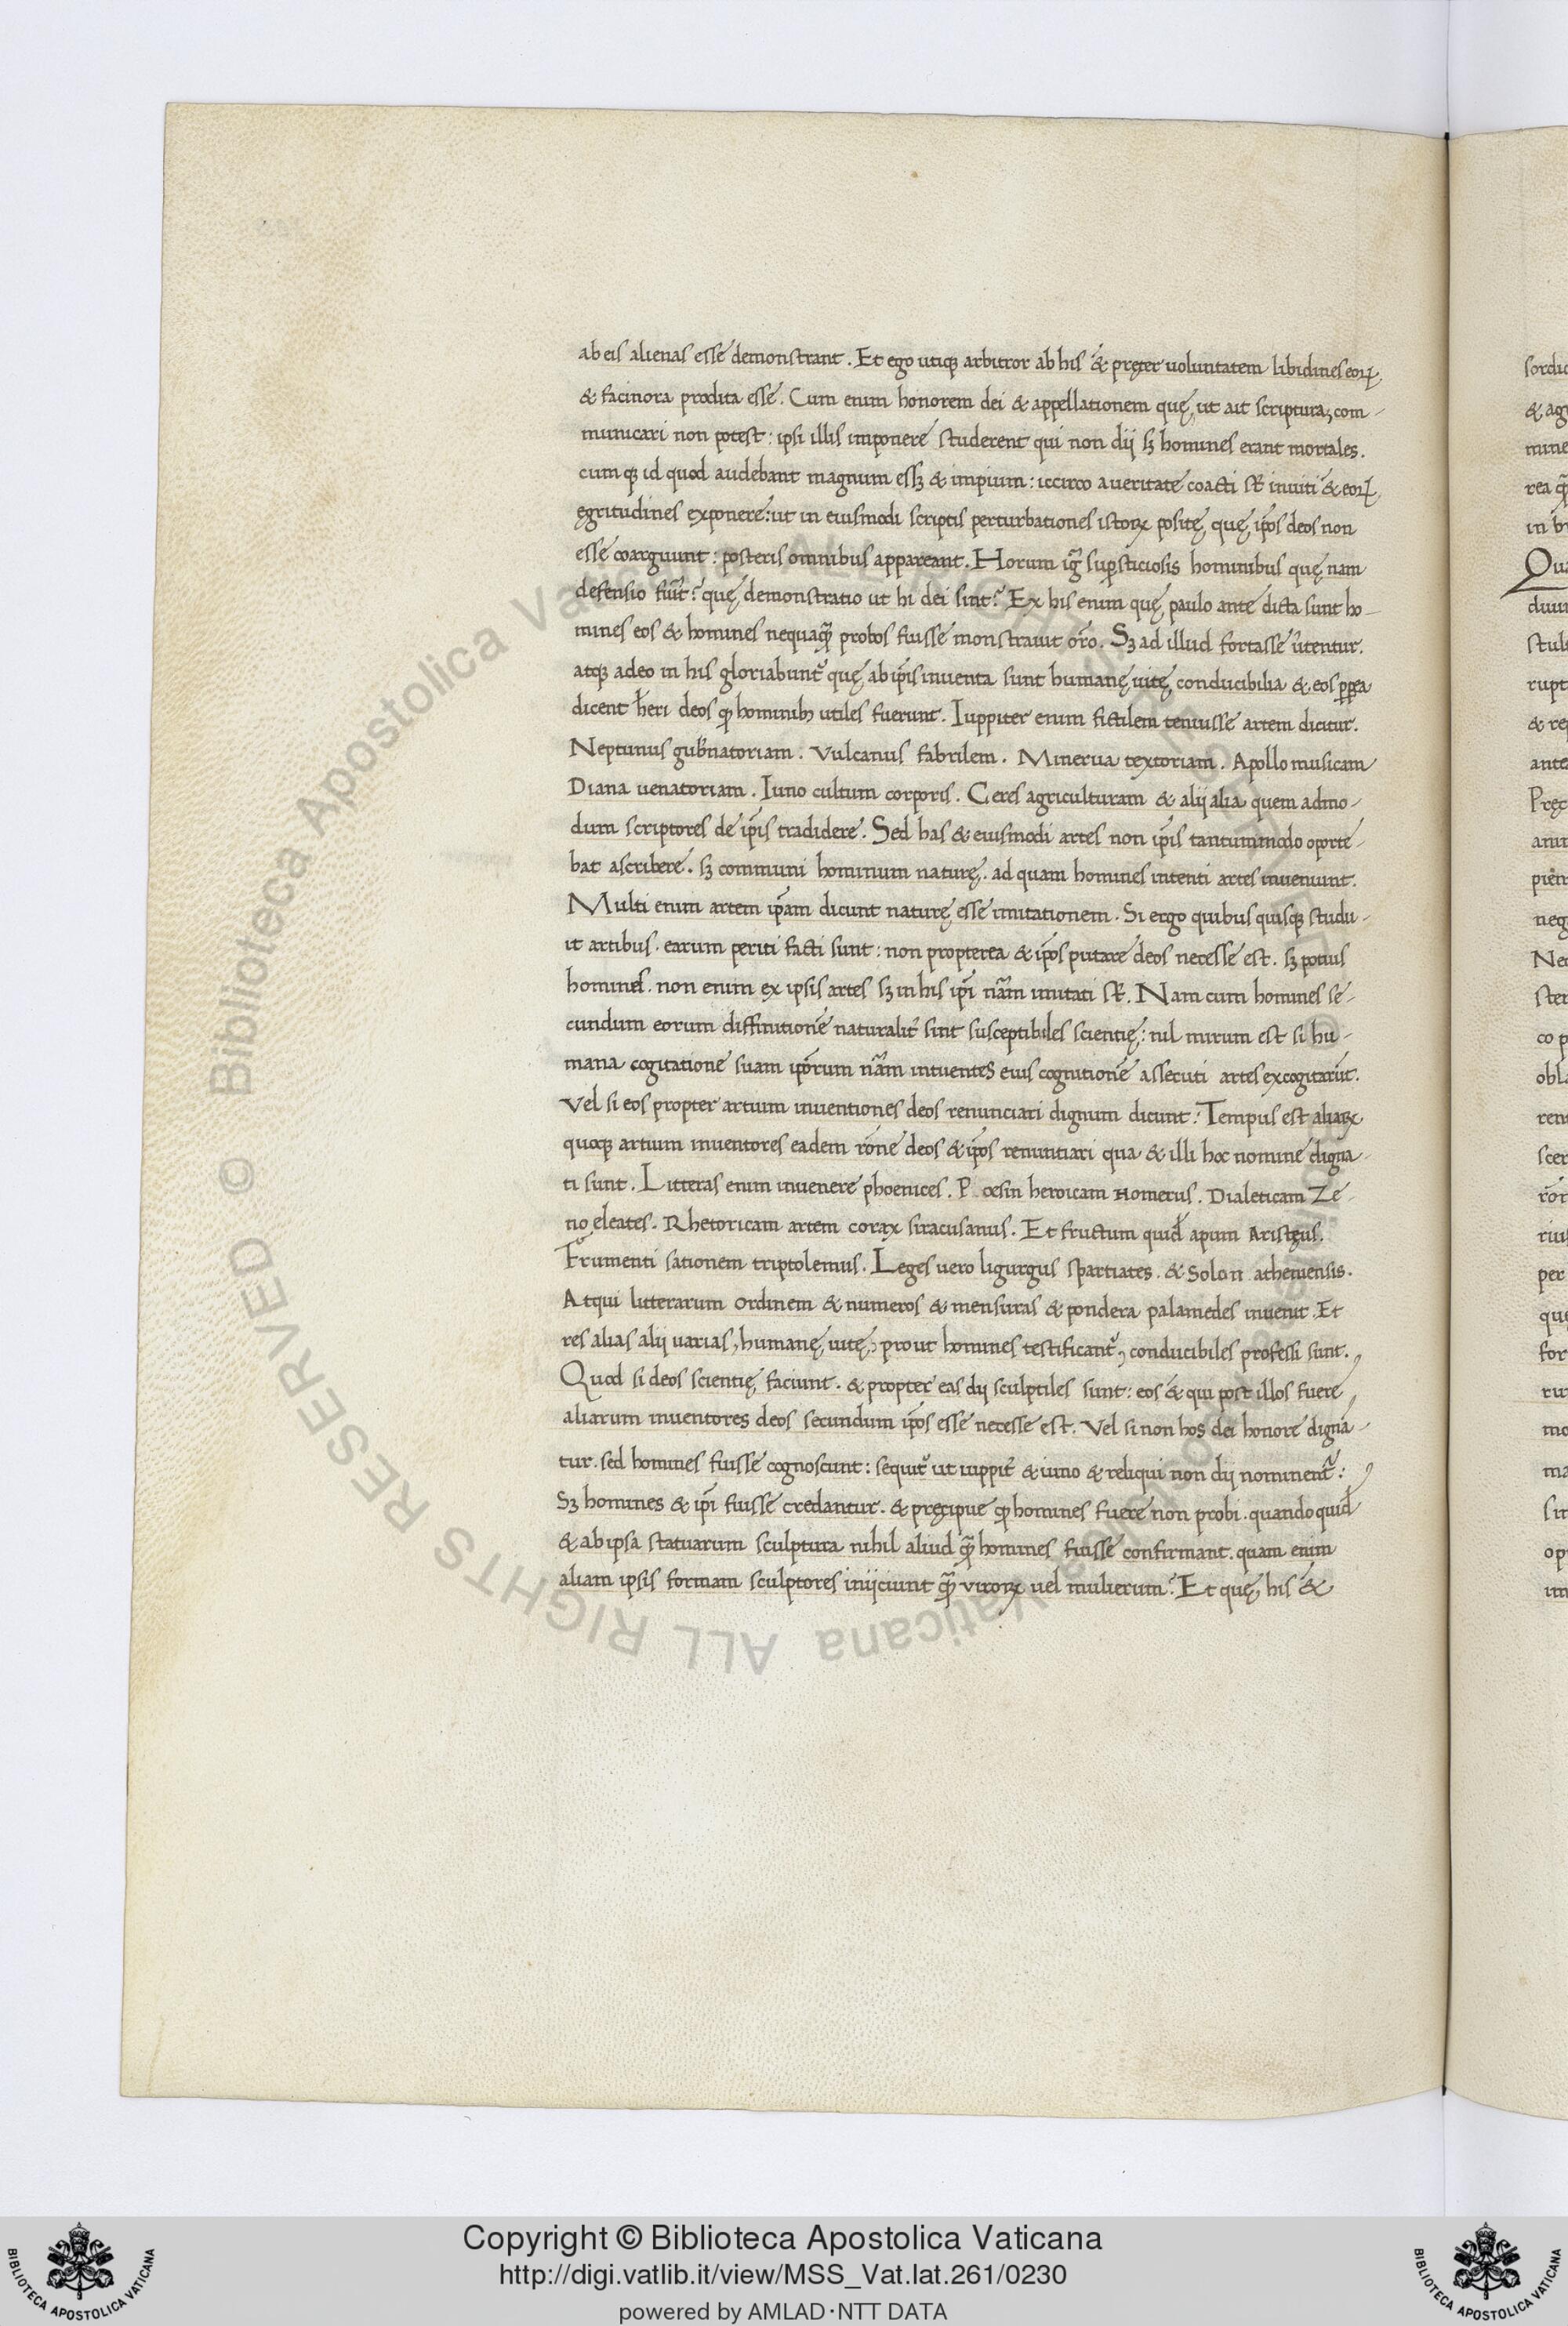 ab eis alienas esse demonstrant. Et ego utiqꝫ arbitror ab his & pręter uoluntatem libidines eoꝝ
& facinora prodita esse. Cum enim honorem dei & appellationem quę, ut ait scriptura, com-
municari non potest: ipsi illis imponere studerent qui non dij sꝫ homines erant mortales.
cum qꝫ id quod audebant magnum essꝫ & impium: iccirco a ueritate coacti st̄ inuiti & eoꝝ
ęgritudines exponere: ut in eiusmodi scriptis perturbationes istoꝝ positę, quę ip̄os deos non
esse coarguunt: posteris omnibus appareant. Horum igr̄ sup̱sticiosis hominibus quę nam
defensio fuūt? quę demonstratio ut hi dei sint? Ex his enim quę paulo ante dicta sunt ho-
mines eos & homines nequaqȝ̄ probos fuisse monstrauit or̄o. Sꝫ ad illud fortasse utentur.
atqꝫ adeo in his gloriabunt᷑ quę ab ip̄is inuenta sunt humanę uitę conducibilia & eos ꝓp̱ea
dicent h̄eri deos ꝙ hominibꝫ utiles fuerunt. Iuppiter enim fictilem tenuisse artem dicitur.
Neptunus gub̄natoriam. Vulcanus fabrilem. Minerua textoriam. Apollo musicam
Diana uenatoriam. Iuno cultum corporis. Ceres agriculturam & alij alia quem admo-
dum scriptores de ip̄is tradidere. Sed has & eiusmodi artes non ip̄is tantummodo oporte-
bat ascribere. sꝫ communi hominum naturę. ad quam homines intenti artes inueniunt.
Multi enim artem ip̄am dicunt naturę esse imitationem. Si ergo quibus quisqꝫ studu-
it artibus. earum periti facti sunt: non propterea & ip̄os putare deos necesse est. sꝫ potius
homines. non enim ex ipsis artes sꝫ in his ip̄i nam̄ imitati st̄. Nam cum homines se-
cundum eorum diffinitionē naturalit᷑ sint susceptibiles scientię: nil mirum est si hu-
mana cogitatione suam ip̄orum nam̄ intuentes eius cognitionē assecuti artes excogitarūt.
Vel si eos propter artium inuentiones deos renunciari dignum dicunt: Tempus est aliaꝝ
quoqꝫ artium inuentores eadem rōne deos & ip̄os renuntiari qua & illi hoc nomine digna-
ti sunt. Litteras enim inuenere phoenices. P oesin heroicam Homerus. Dialeticam Ze-
no eleates. Rhetoricam artem corax siracusanus. Et fructum quid̄ apum Aristęus.
Frumenti sationem triptolemus. Leges uero ligurgus spartiates. & Solon atheniensis.
Atqui litterarum ordinem & numeros & mensuras & pondera palamedes inuenit. Et
res alias alij uarias, humanę uitę, prout homines testificant᷑, conducibiles professi sunt.
Quod si deos scientię faciunt. & propter eas dij sculptiles sunt: eos & qui post illos fuere
aliarum inuentores deos secundum ip̄os esse necesse est. Vel si non hos dei honore digna-
tur. sed homines fuisse cognoscunt: sequit᷑ ut iuppit᷑ & iuno & reliqui non dij nominent᷑:
Sꝫ homines & ip̄i fuisse credantur. & pręcipue ꝙ homines fuere non probi. quando quid̄
& ab ipsa statuarum sculptura nihil aliud qȝ̄ homines fuisse confirmant. quam enim
aliam ipsis formam sculptores inijciunt qȝ̄ uiroꝝ uel mulierum? Et quę his &
Copyright © Biblioteca Apostolica Vaticana
http://digi.vatlib.it/view/MSS_Vat.lat.261/0230
powered by AMLAD·NTT DATA
BIBLIOTECA APOSTOLICA VATICANA
BIBLIOTECA APOSTOLICA VATICANA
© Biblioteca Apostolica Vaticana ALL RIGHTS RESERVED